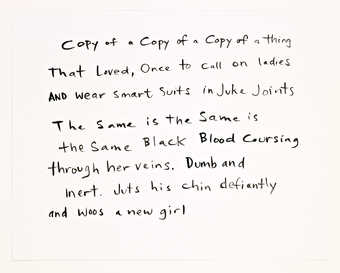 Copy of a Copy of a Copy of a thing
That Loved, Once to call on ladies
AND wear smart suits in Juke Joints
The Same is the Same is
the Same Black Blood Coursing
through her veins. Dumb and
Inert. Juts his chin defiantly
and woos a new girl